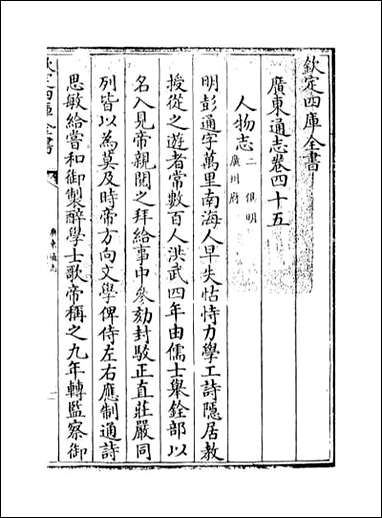 欽定四庫全書
廣東通志卷四十五
人物志二 俱明
廣州府
明彭通字萬里南海人早失怙恃力學工詩隱居教
授從之遊者常數百人洪武四年由儒士舉銓部以
名入見帝親閱之拜給事中參劾封駮正直莊嚴同
列皆以為莫及時帝方向文學俾侍左右應制通詩
思敏給嘗和御製醉學士歌帝稱之九年轉監察御
欽定四庫全書
廣東通志
一